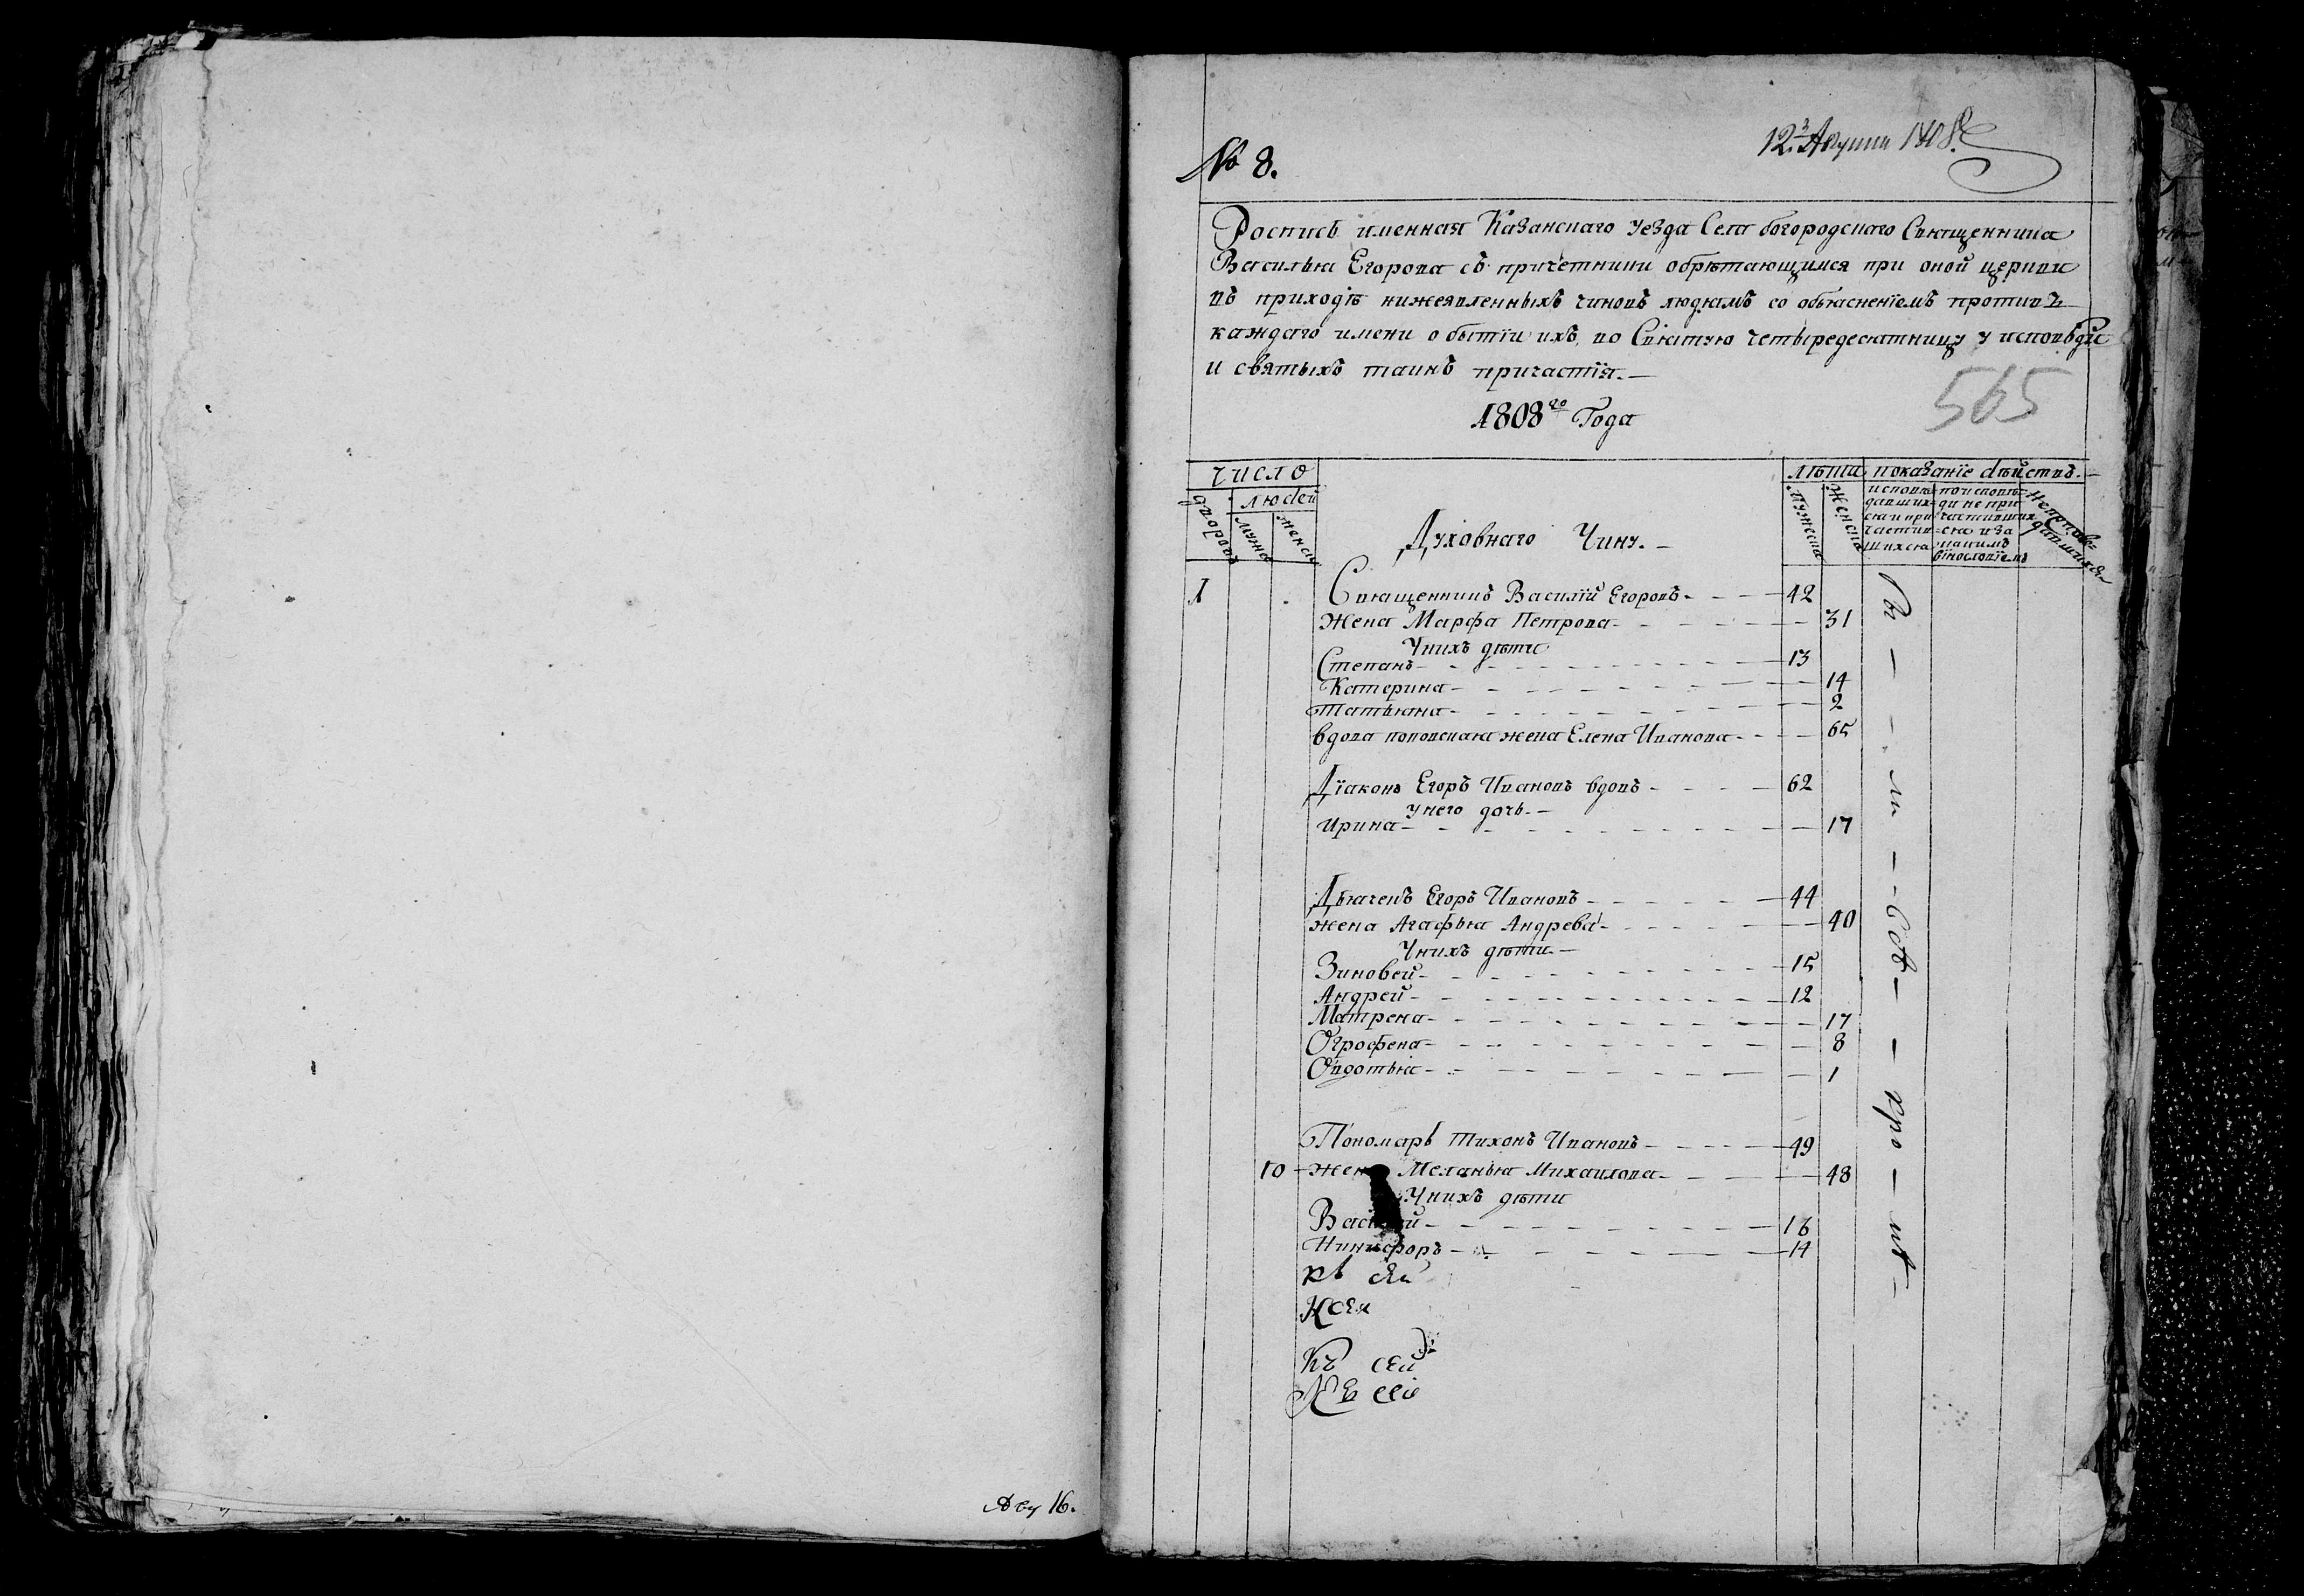 Аву 16.
№ 8.
12. Августа 1808.
Роспись именная Казанскаго уезда Села богородскаго Священника
Василья Егорова съ причетники обрѣтающимся при оной церкви
въ приходѣ нижеявленныхъ чиновъ людямъ со объясненїемъ противъ
каждаго имени о бытїи ихъ во Святую четыредесятницу у исповѣди
и святыхъ таинъ причастїя.—
565
1808го Года
число
людей
дворовъ
мужес
женск
Духовнаго Чину.—
лѣта
мужеска
женска
показанїе дѣйствъ.—
исповѣдавшихся и причастившихся
по исповѣди не причастившихся и за какимъ винословїемъ
1
Священникъ Василїй Егоровъ - 42
Жена Марфа Петрова - 31
У нихъ дѣти
Степанъ - 13
Катерина - 14
Татьяна - 2
Вдова поповская жена Елена Иванова - 65
Дїаконъ Егоръ Ивановъ вдовъ - 62
У него дочь.—
Ирина - 17
Дьячекъ Егоръ Ивановъ - 44
жена Агафья Андрева - 40
У нихъ дѣти.—
Зиновей - 15
Андрей - 12
Матрена - 17
Огрофена - 8
Овдотья - 1
Пономарь Тихонъ Ивановъ - 49
10 Жена Меланья Михаилова - 48
У нихъ дѣти
Василїй - 18
Никифоръ - 14
къ сей
Къ сей